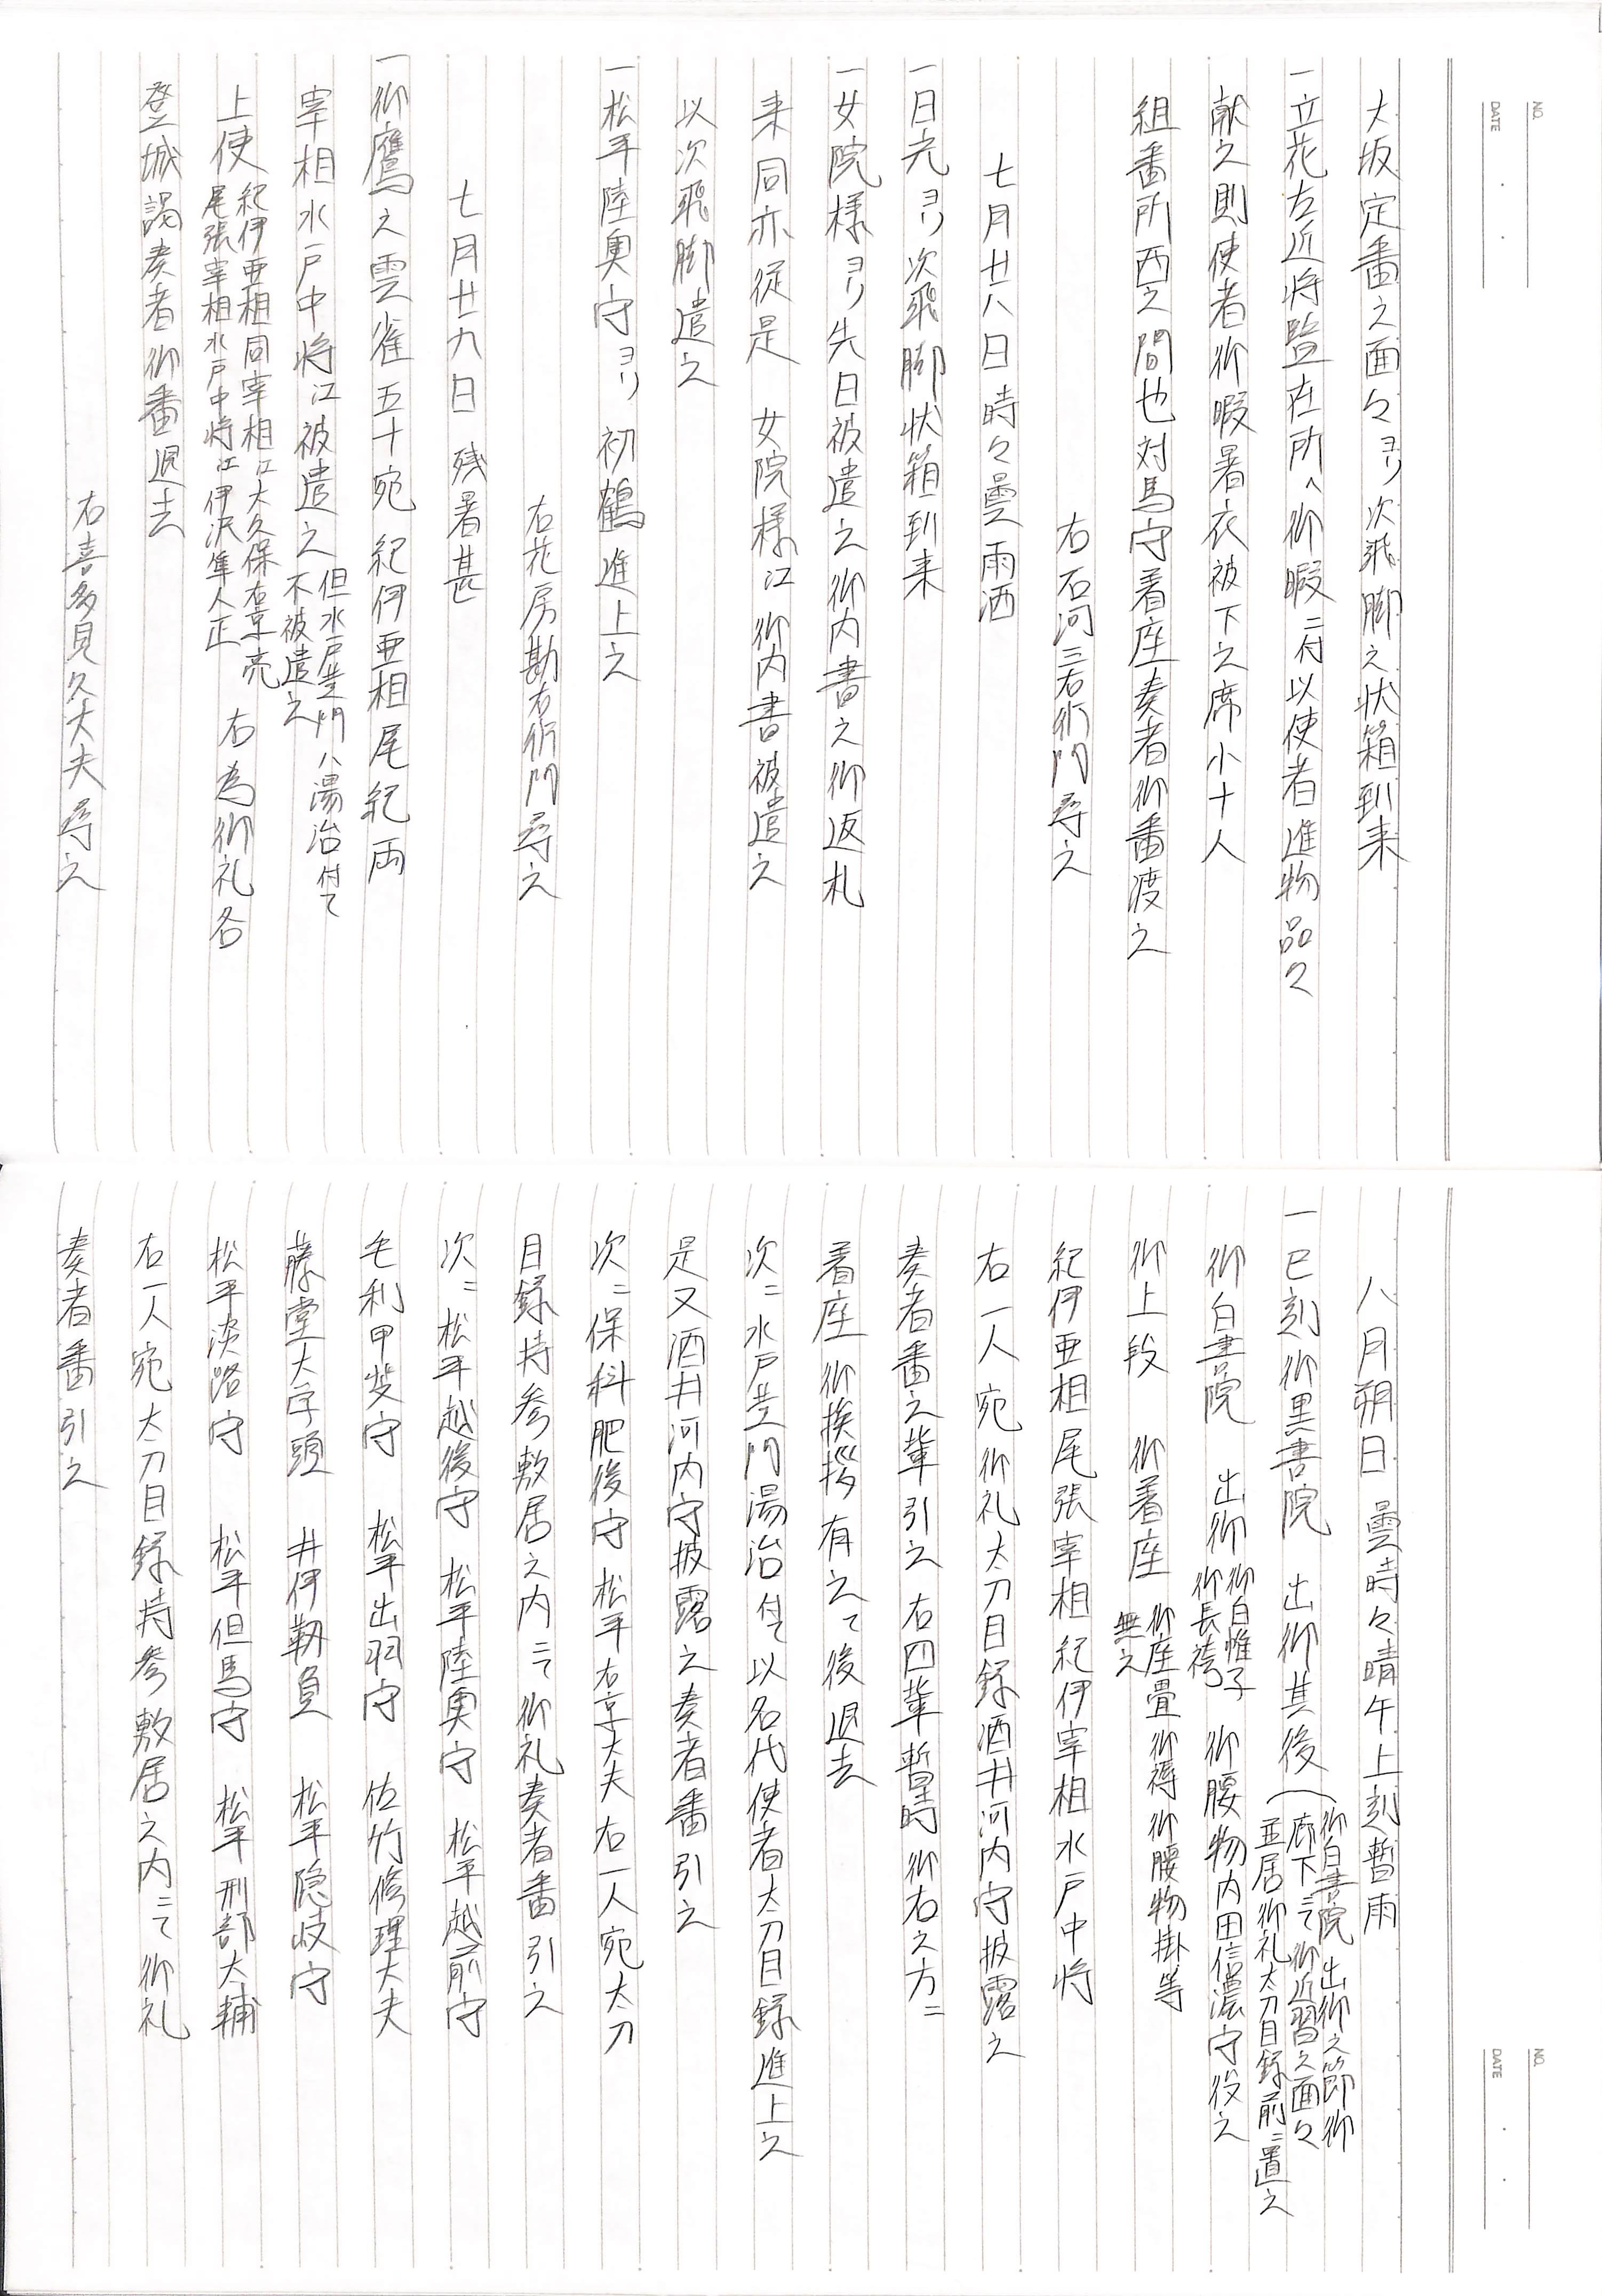 NO.
DATE
大坂定番之面々ヨリ次飛脚之状箱到来
一立花左近将監在所へ御暇ニ付以使者進物品々
献之則使者御暇暑衣被下之席小十人
組番所西之間也対馬守着座奏者御番渡之
右石河三右衛門尋之
七月廿八日時々曇雨洒
一日光ヨリ次飛脚状箱到来
一女院様ヨリ先日被遣之御内書之御返札
来同亦従是 女院様江御内書被遣之
以次飛脚遣之
一松平陸奥守ヨリ初鶴進上之
右花房勘右衛門尋之
七月廿九日 残暑甚
一御鷹之雲雀五十宛紀伊亜相尾紀両
宰相水戸中将江被遣之 但水戸黄門ハ湯治付て
不被遣之
上使 紀伊亜相同宰相江大久保右京亮
尾張宰相水戸中将江伊沢隼人正 右為御礼各
登城謁奏者御番退去
右喜多見久大夫尋之
NO.
DATE
八月朔日 曇時々晴午上刻暫雨
一巳刻御黒書院 出御其後(御白書院出御之節御
廊下ニて御近習之面々
並居御礼太刀目録前ニ置之
御白書院 出御 御白帷子
御長袴 御腰物内田信濃守役之
御上段 御着座 御座畳御褥御腰物掛等
無之
紀伊亜相尾張宰相紀伊宰相水戸中将
右一人宛御礼太刀目録酒井河内守披露之
奏者番之輩引之右四輩暫時御右之方ニ
着座御挨拶有之て後退去
次ニ水戸黄門湯治付て以名代使者太刀目録進上之
是又酒井河内守披露之奏者番引之
次ニ保科肥後守松平右京大夫右一人宛太刀
目録持参敷居之内ニて御礼奏者番引之
次ニ松平越後守 松平陸奥守 松平越前守
毛利甲斐守 松平出羽守 佐竹修理大夫
藤堂大学頭 井伊靱負 松平隠岐守
松平淡路守 松平但馬守 松平刑部大輔
右一人宛太刀目録持参敷居之内ニて御礼
奏者番引之